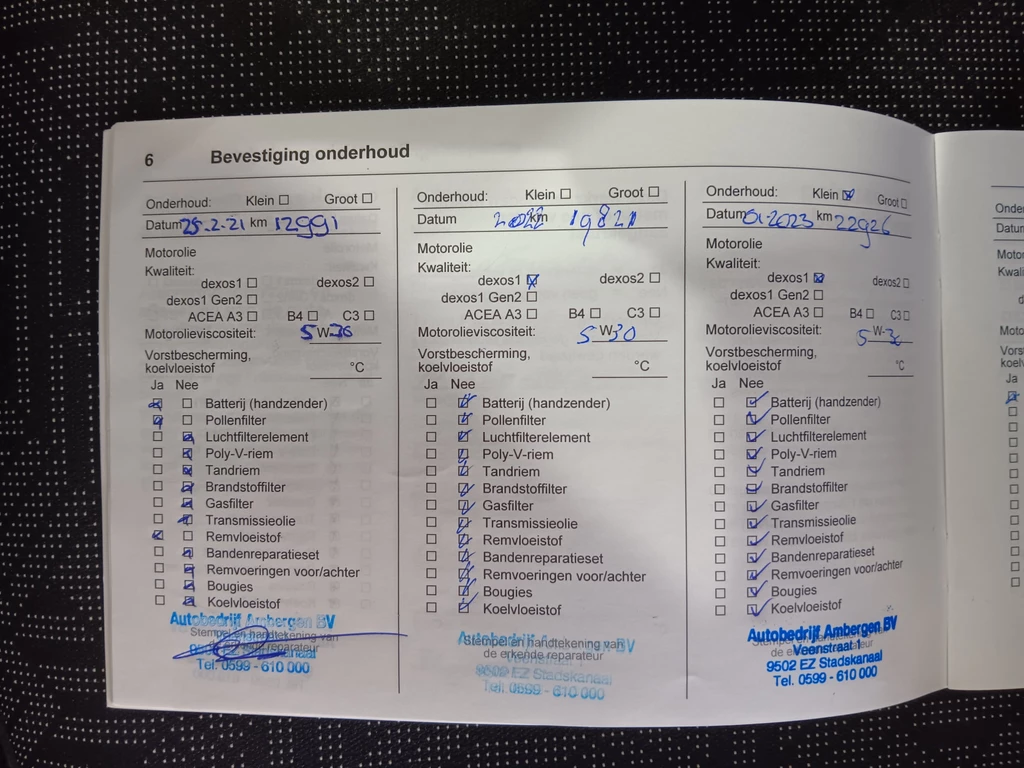 6 Bevestiging onderhoud
Onderhoud: Klein ☐ Groot ☐
Datum 25-2-21 km 12991
Motorolie
Kwaliteit:
dexos1 ☐ dexos2 ☐
dexos1 Gen2 ☐
ACEA A3 ☐ B4 ☐ C3 ☐
Motorolieviscositeit: 5 W-30
Vorstbescherming,
koelvloeistof °C
Ja Nee
☒ ☐ Batterij (handzender)
☒ ☐ Pollenfilter
☐ ☒ Luchtfilterelement
☐ ☒ Poly-V-riem
☐ ☒ Tandriem
☐ ☒ Brandstoffilter
☐ ☒ Gasfilter
☐ ☒ Transmissieolie
☒ ☐ Remvloeistof
☐ ☒ Bandenreparatieset
☐ ☒ Remvoeringen voor/achter
☐ ☒ Bougies
☐ ☒ Koelvloeistof
Autobedrijf Ambergen BV
Stempel en handtekening van
reparateur
Tel. 0599 - 610 000
Onderhoud: Klein ☐ Groot ☐
Datum 2022 km 19821
Motorolie
Kwaliteit:
dexos1 ☒ dexos2 ☐
dexos1 Gen2 ☐
ACEA A3 ☐ B4 ☐ C3 ☐
Motorolieviscositeit: 5 W-30
Vorstbescherming,
koelvloeistof °C
Ja Nee
☐ ☒ Batterij (handzender)
☐ ☒ Pollenfilter
☐ ☒ Luchtfilterelement
☐ ☒ Poly-V-riem
☐ ☒ Tandriem
☐ ☒ Brandstoffilter
☐ ☒ Gasfilter
☐ ☒ Transmissieolie
☐ ☒ Remvloeistof
☐ ☒ Bandenreparatieset
☐ ☒ Remvoeringen voor/achter
☐ ☒ Bougies
☐ ☒ Koelvloeistof
Autobedrijf BV
Stempel en handtekening van
de erkende reparateur
9502 EZ Stadskanaal
Tel. 0599 - 610 000
Onderhoud: Klein ☒ Groot ☐
Datum 01-2023 km 22926
Motorolie
Kwaliteit:
dexos1 ☒ dexos2 ☐
dexos1 Gen2 ☐
ACEA A3 ☐ B4 ☐ C3 ☐
Motorolieviscositeit: 5 W-30
Vorstbescherming,
koelvloeistof °C
Ja Nee
☐ ☑ Batterij (handzender)
☐ ☑ Pollenfilter
☐ ☑ Luchtfilterelement
☐ ☑ Poly-V-riem
☐ ☑ Tandriem
☐ ☑ Brandstoffilter
☐ ☑ Gasfilter
☐ ☑ Transmissieolie
☐ ☑ Remvloeistof
☐ ☑ Bandenreparatieset
☐ ☑ Remvoeringen voor/achter
☐ ☑ Bougies
☐ ☑ Koelvloeistof
Autobedrijf Ambergen BV
Veenstraat 1
9502 EZ Stadskanaal
Tel. 0599 - 610 000